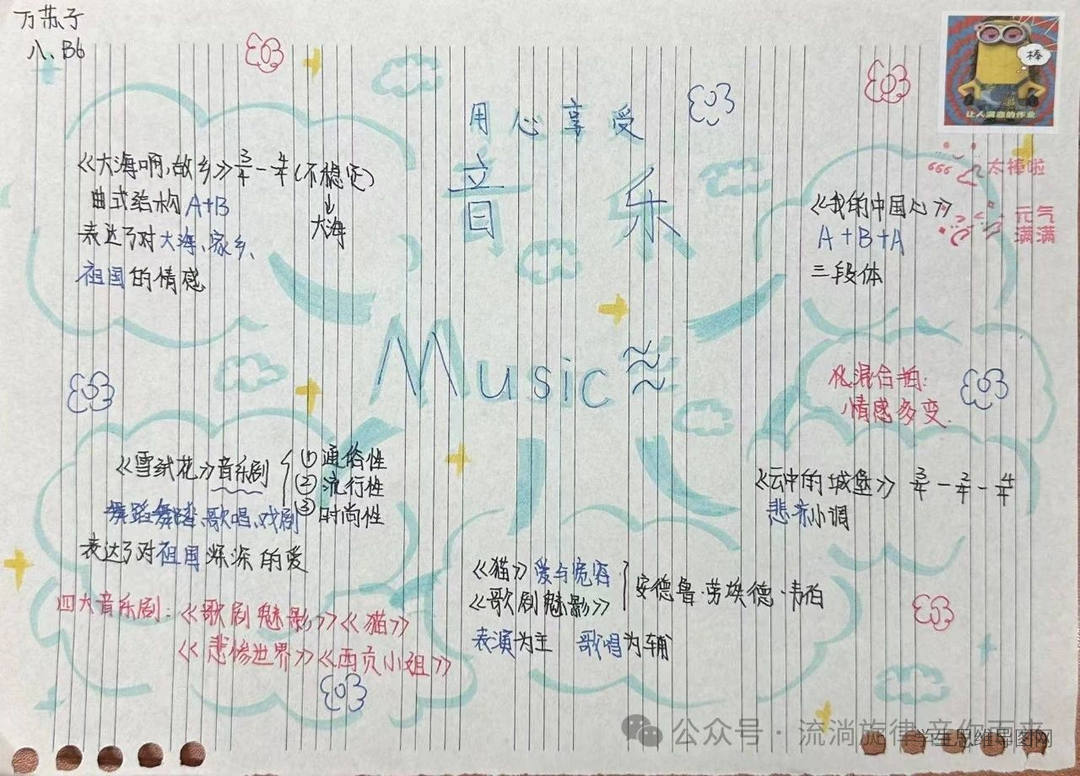 万苏子
八、B6
棒
让人满意的作业
太棒啦
元气
满满
用心享受
音乐
Music
《大海啊,故乡》3/4-4/4(不稳定)
↓
大海
曲式结构A+B
表达了对大海、家乡、
祖国的情感
《我的中国心》
A+B+A
三段体
混合拍:
情感多变
《雪绒花》音乐剧
①通俗性
②流行性
③时尚性
舞蹈 歌唱、戏剧
表达了对祖国深深的爱
《云中的城堡》3/4-2/4-4/4
小调
四大音乐剧:《歌剧魅影》《猫》
《悲惨世界》《西贡小姐》
《猫》爱与宽容
《歌剧魅影》
安德鲁·劳埃德·韦伯
表演为主 歌唱为辅
公众号·流淌旋律 音你而来
学生思维导图网